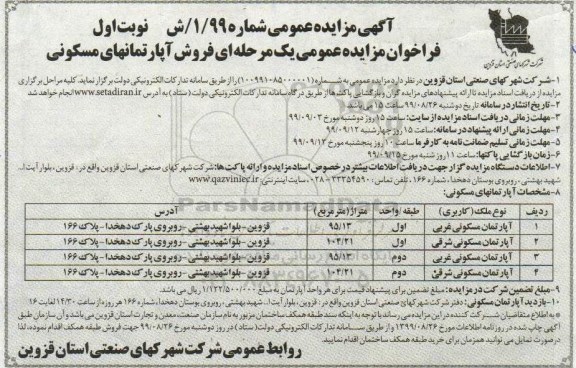 آگهی مزایده عمومی شماره ۱/۹۹/ش    نوبت اول
فراخوان مزایده عمومی یک مرحله ای فروش آپارتمانهای مسکونی
شرکت شهرکهای صنعتی استان قزوین
۱- شرکت شهرکهای صنعتی استان قزوین در نظر دارد مزایده عمومی به شماره (۱۰۰۹۹۱۰۸۵۰۰۰۰۰۱) را از طریق سامانه تدارکات الکترونیکی دولت برگزار نماید. کلیه مراحل برگزاری
مزایده از دریافت اسناد مزایده تا ارائه پیشنهادهای مزایده گران و بازگشایی پاکت ها از طریق درگاه سامانه تدارکات الکترونیکی دولت (ستاد) به آدرس www.setadiran.ir انجام خواهد شد
۲- تاریخ انتشار در سامانه تاریخ دوشنبه ۹۹/۰۸/۲۶ ساعت ۱۵ می باشد
۳- مهلت زمانی دریافت اسناد مزایده از سایت: ساعت ۱۵ روز دوشنبه مورخ ۹۹/۰۹/۰۳
۴- مهلت زمانی ارائه پیشنهاد در سامانه: ساعت ۱۵ روز چهارشنبه ۹۹/۰۹/۱۲
۵- مهلت زمانی تسلیم ضمانت نامه به کارفرما ساعت ۱۰ روز پنجشنبه مورخ ۹۹/۰۹/۱۳
۶- زمان بازگشایی پاکتها: ساعت ۱۱ روز شنبه مورخ ۹۹/۰۹/۱۵
۷- اطلاعات دستگاه مزایده گزار جهت دریافت اطلاعات بیشتر در خصوص اسناد مزایده و ارائه پاکت ها: شرکت شهرکهای صنعتی استان قزوین واقع در: قزوین، بلوار آیت ا...
شهید بهشتی، روبروی بوستان دهخدا، شماره ۱۶۶، تلفن تماس: ۳۳۳۵۴۵۹۰-۰۲۸ سایت اینترنتی: www.qazviniec.ir
۸- مشخصات آپارتمانهای مسکونی:
ردیف نوع ملک (کاربری) طبقه واحد متراژ (مترمربع) آدرس
۱ آپارتمان مسکونی غربی اول ۹۵/۱۳ قزوین - بلوار شهید بهشتی - روبروی پارک دهخدا - پلاک ۱۶۶
۲ آپارتمان مسکونی شرقی اول ۱۰۴/۲۱ قزوین - بلوار شهید بهشتی - روبروی پارک دهخدا - پلاک ۱۶۶
۳ آپارتمان مسکونی غربی دوم ۹۵/۱۳ قزوین - بلوار شهید بهشتی - روبروی پارک دهخدا - پلاک ۱۶۶
۴ آپارتمان مسکونی شرقی دوم ۱۰۴/۲۱ قزوین - بلوار شهید بهشتی - روبروی پارک دهخدا - پلاک ۱۶۶
۹- مبلغ تضمین شرکت در مزایده: مبلغ تضمین برای پیشنهاد قیمت برای هر واحد آپارتمان به مبلغ ۱/۱۲۲/۵۰۰/۰۰۰ ریال می باشد.
۱۰- بازدید آپارتمان مسکونی: دفتر شرکت شهرکهای صنعتی استان قزوین واقع در: قزوین، بلوار آیت ا... شهید بهشتی، روبروی بوستان دهخدا، شماره ۱۶۶ هر روزه از ساعت ۱۴/۳۰ لغایت ۱۶
* به اطلاع متقاضیان شرکت کننده در این مزایده می رساند با توجه به اینکه سند طبقه همکف ساختمان مزبور به نام سازمان صنعت، معدن و تجارت استان قزوین می باشد و آن سازمان طبق
آگهی چاپ شده در روزنامه اطلاعات مورخ ۱۳۹۹/۰۸/۲۶ و از طریق سامانه تدارکات الکترونیکی دولت (ستاد) در روز دوشنبه مورخ ۹۹/۰۸/۲۶ جهت فروش طبقه همکف اقدام نموده، لذا
در صورت تمایل می توانید همزمان برای خرید طبقه همکف ساختمان اقدام نمایید.
روابط عمومی شرکت شهرکهای صنعتی استان قزوین
ParsNamadData